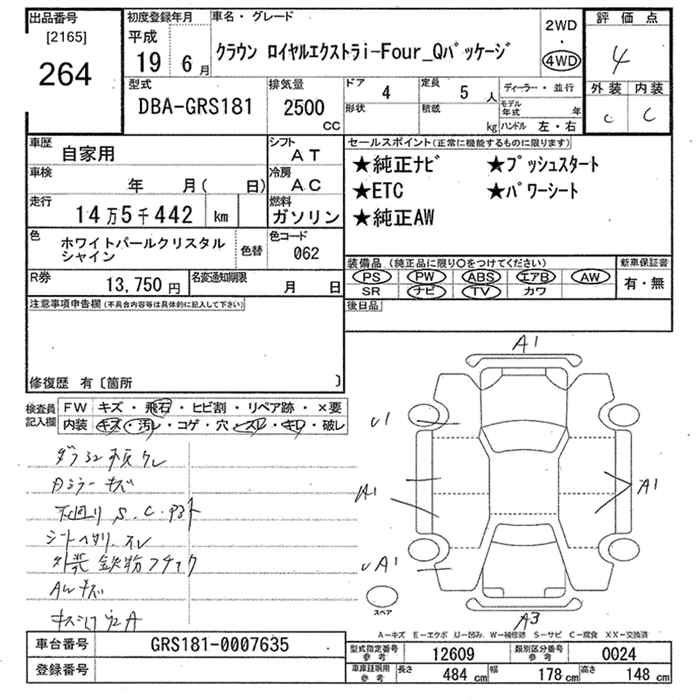 出品番号 初度登録年月 車名・グレード 2WD 評価点
[2165] 平成 ・
264 19 6月 クラウン ロイヤルエクストラi-Four_Qパッケージ 4WD 4
型式 排気量 ドア 4 定員 5人 ディーラー・並行 外装 内装
DBA-GRS181 2500 CC 形状 積載 kg モデル年式 年 C C
ハンドル 左・右
車歴 自家用 シフト AT セールスポイント(正常に機能するものに限ります)
車検 年 月( 日) 冷房 AC ★純正ナビ ★プッシュスタート
走行 14万5千442 km 燃料 ガソリン ★ETC ★パワーシート
★純正AW
色 ホワイトパールクリスタルシャイン 色替 色コード 062
装備品(純正品に限り○をつけてください) 新車保証書
PS PW ABS エアB AW 有・無
SR ナビ TV カワ
R券 13,750円 名変通知期限 月 日
注意事項申告欄(不具合内容等は具体的に記入して下さい) 後日品
修復歴 有〔箇所 〕
検査員記入欄 FW キズ・飛石・ヒビ割・リペア跡・×要
内装 キズ・汚レ・コゲ・穴・スレ・キレ・破レ
A1
U1
A1 A1
A1
カラーキズ
下廻り S.C.
シート
外装 鉄粉
AWキズ
スペア
A3
A-キズ E-エクボ U-凹み W-補修跡 S-サビ C-腐食 XX-交換済
車台番号 GRS181-0007635 型式指定番号 参考 12609 類別区分番号 参考 0024
登録番号 車庫証明用 参考 長さ 484 cm 幅 178 cm 高さ 148 cm